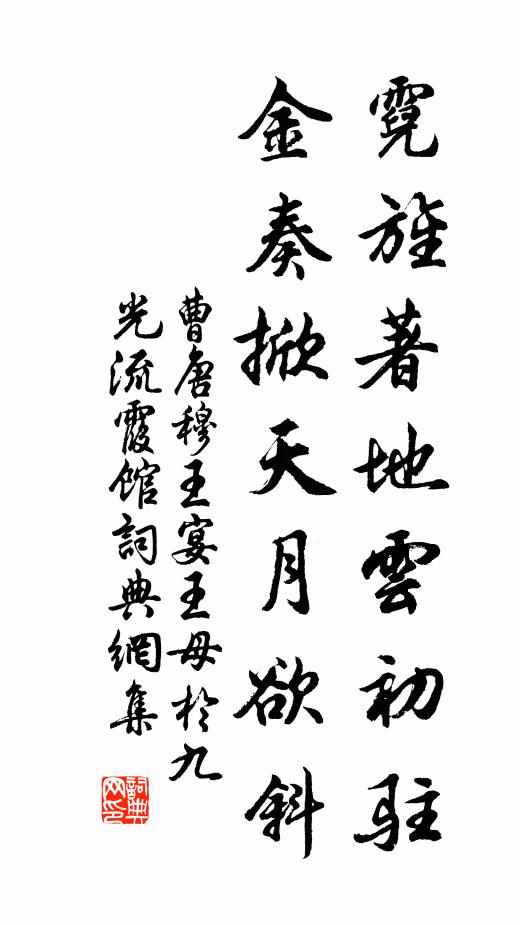 霓旌著地雲初駐
金奏掀天月欲斜
曹唐穆王宴王母於九
光流霞館詞典網集
詞典网印